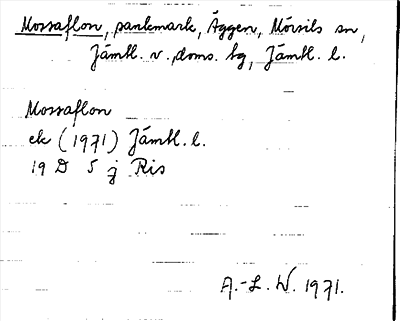 Mossaflon, sankmark, Äggen, Mörsils sn,
Jämtl. v., doms. hg, Jämtl. l.
Mossaflon
ek (1971) Jämtl. l.
19 D 5 j Ris
A.-L. W. 1971.